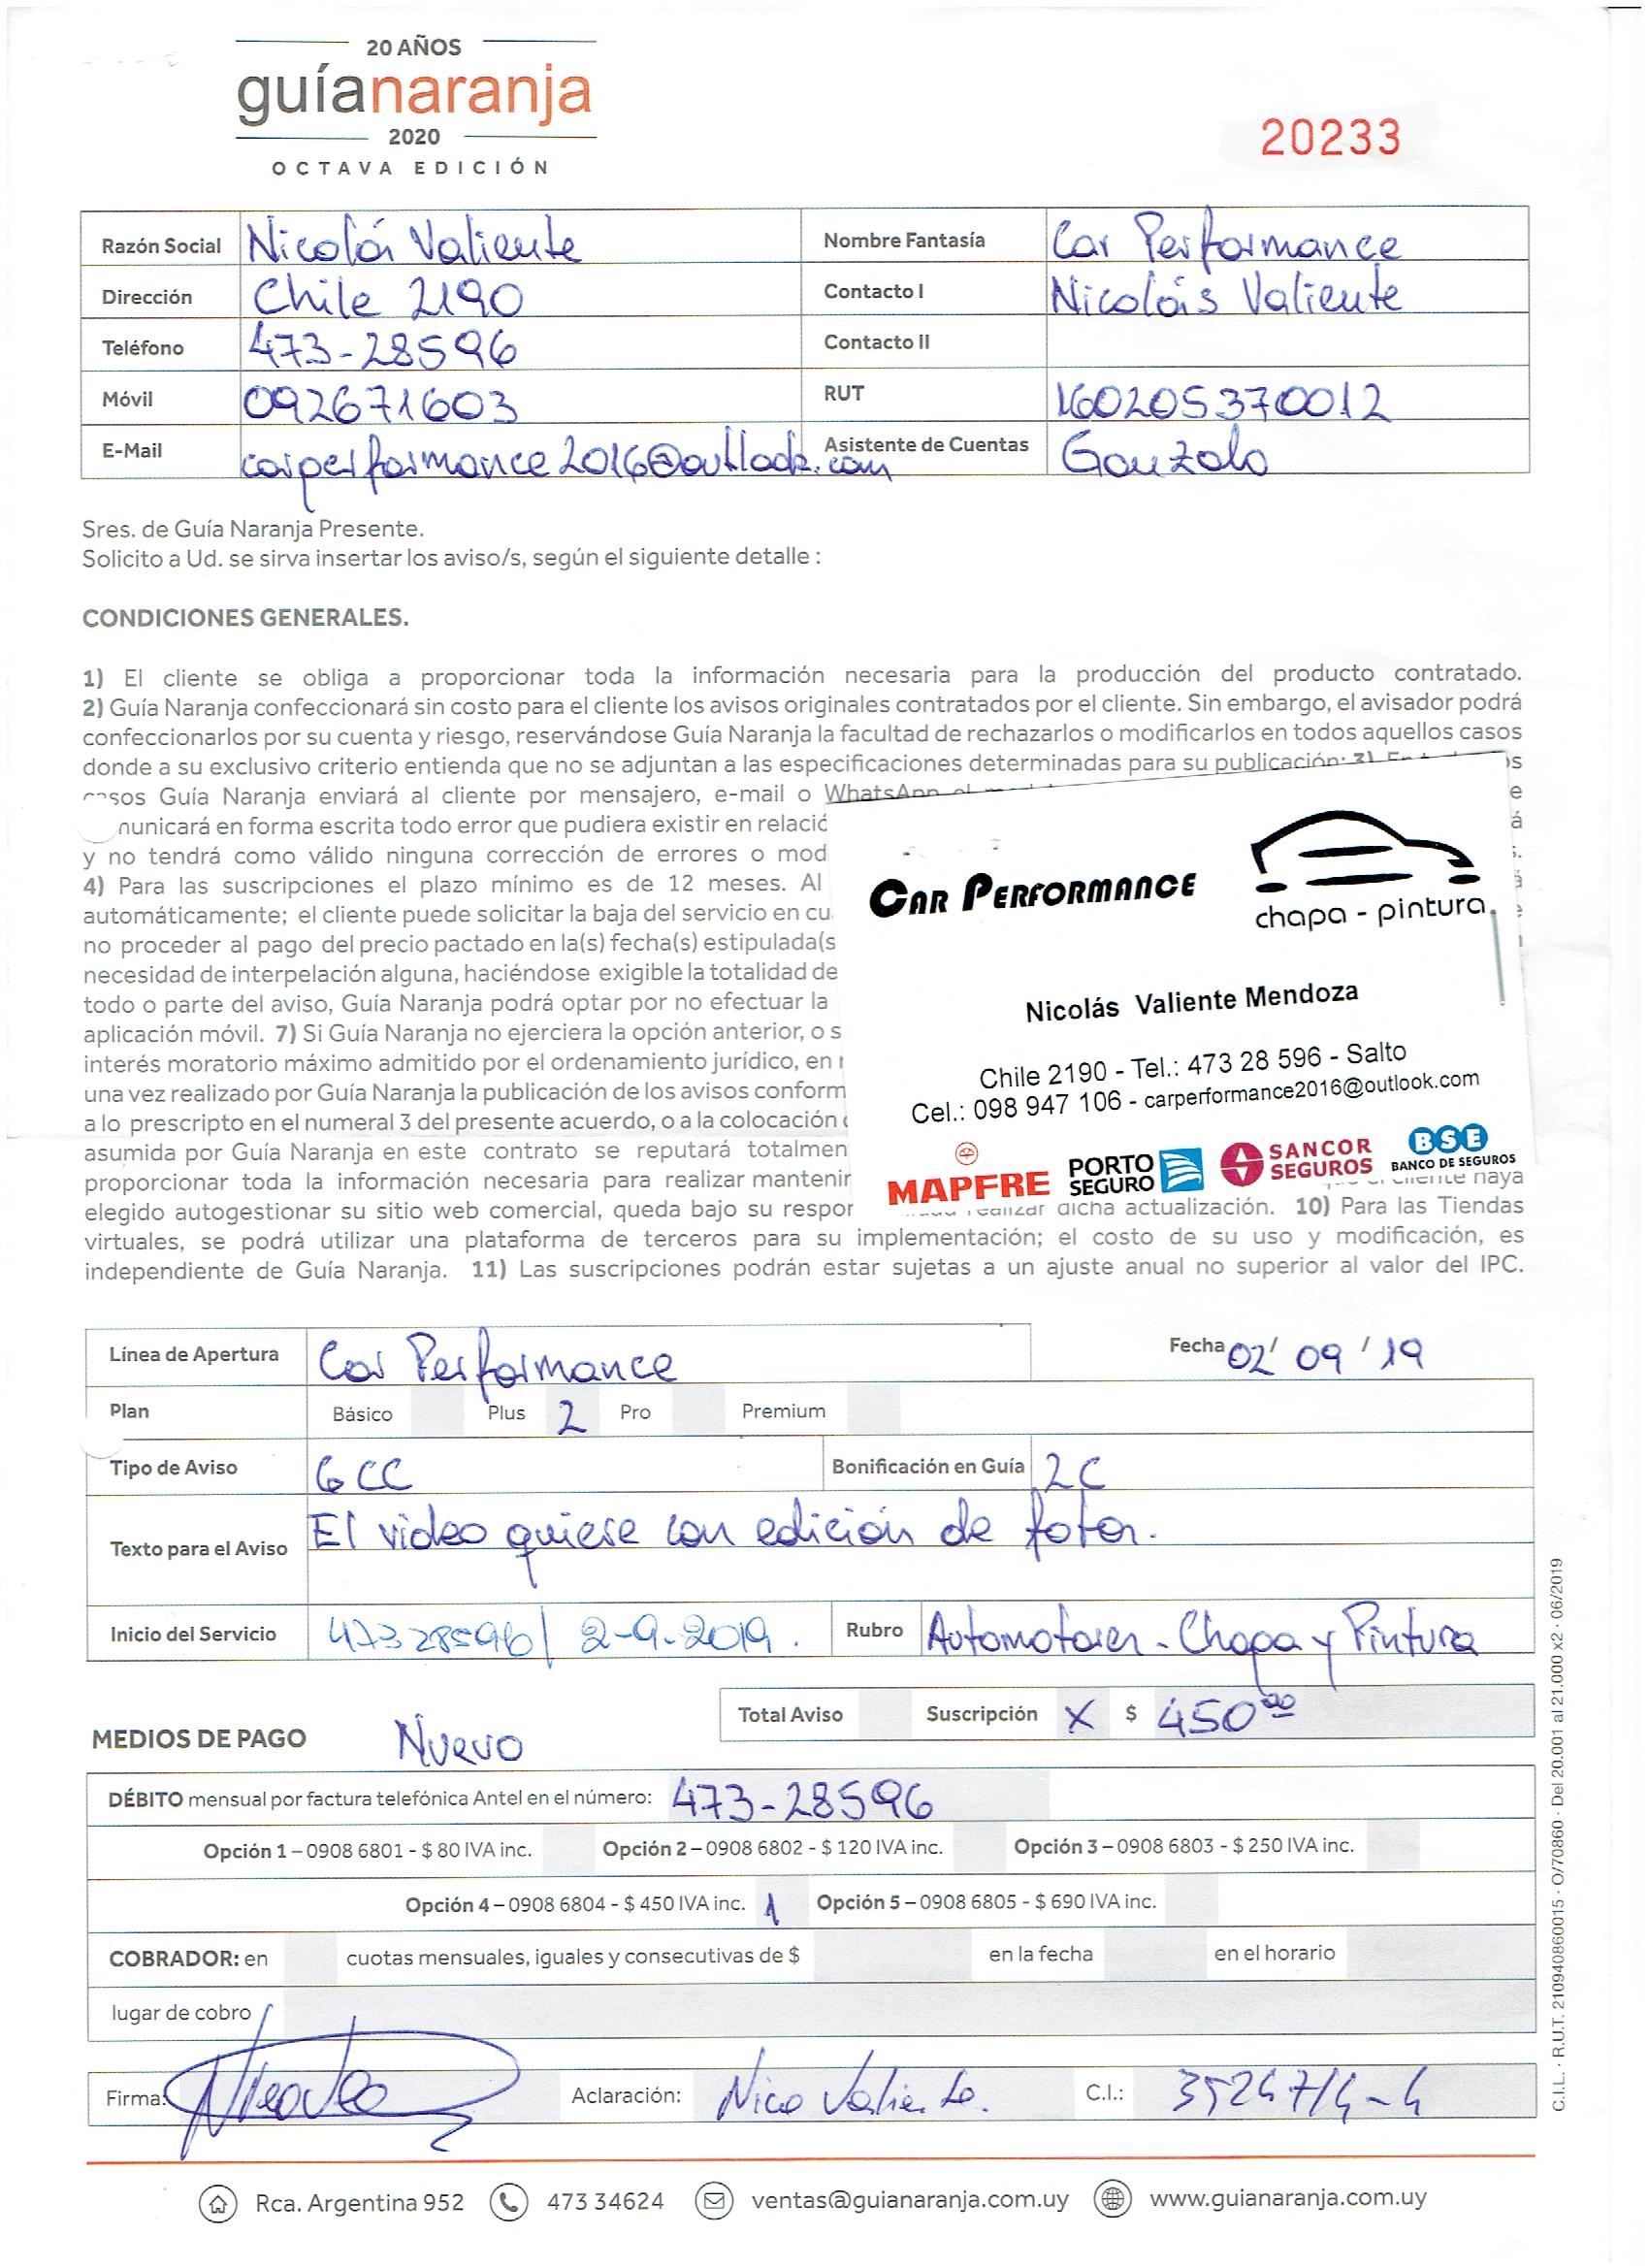 20 AÑOS
guíanaranja
2020
OCTAVA EDICIÓN
20233
Razón Social Nicolás Valiente Nombre Fantasía Car Performance
Dirección Chile 2190 Contacto I Nicolás Valiente
Teléfono 473-28596 Contacto II
Móvil 092671603 RUT 160205370012
E-Mail carperformance2016@outlook.com Asistente de Cuentas Gonzalo
Sres. de Guía Naranja Presente.
Solicito a Ud. se sirva insertar los aviso/s, según el siguiente detalle :
CONDICIONES GENERALES.
1) El cliente se obliga a proporcionar toda la información necesaria para la producción del producto contratado.
2) Guía Naranja confeccionará sin costo para el cliente los avisos originales contratados por el cliente. Sin embargo, el avisador podrá
confeccionarlos por su cuenta y riesgo, reservándose Guía Naranja la facultad de rechazarlos o modificarlos en todos aquellos casos
donde a su exclusivo criterio entienda que no se adjuntan a las especificaciones determinadas para su publicación; 3) En
Guía Naranja enviará al cliente por mensajero, e-mail o WhatsApp
en forma escrita todo error que pudiera existir en
y no tendrá como válido ninguna corrección de errores o
4) Para las suscripciones el plazo mínimo es de 12 meses. Al
automáticamente; el cliente puede solicitar la baja del servicio en
no proceder al pago del precio pactado en la(s) fecha(s)
necesidad de interpelación alguna, haciéndose exigible la totalidad de
todo o parte del aviso, Guía Naranja podrá optar por no efectuar la
aplicación móvil. 7) Si Guía Naranja no ejerciera la opción anterior, o
interés moratorio máximo admitido por el ordenamiento jurídico, en
una vez realizado por Guía Naranja la publicación de los avisos
a lo prescripto en el numeral 3 del presente acuerdo, o a la colocación
asumida por Guía Naranja en este contrato se reputará
proporcionar toda la información necesaria para realizar
el cliente haya
elegido autogestionar su sitio web comercial, queda bajo su
realizar dicha actualización. 10) Para las Tiendas
virtuales, se podrá utilizar una plataforma de terceros para su implementación; el costo de su uso y modificación, es
independiente de Guía Naranja. 11) Las suscripciones podrán estar sujetas a un ajuste anual no superior al valor del IPC.
CAR PERFORMANCE
chapa - pintura
Nicolás Valiente Mendoza
Chile 2190 - Tel.: 473 28 596 - Salto
Cel.: 098 947 106 - carperformance2016@outlook.com
MAPFRE PORTO SEGURO SANCOR SEGUROS BSE BANCO DE SEGUROS
Línea de Apertura Car Performance Fecha 02/ 09 / 19
Plan Básico Plus 2 Pro Premium
Tipo de Aviso 6CC Bonificación en Guía 2C
Texto para el Aviso El video quiere con edición de fotos.
Inicio del Servicio 47328596/ 2-9-2019. Rubro Automotores - Chapa y Pintura
Total Aviso Suscripción X $ 450⁰⁰
MEDIOS DE PAGO Nuevo
DÉBITO mensual por factura telefónica Antel en el número: 473-28596
Opción 1 – 0908 6801 - $ 80 IVA inc. Opción 2 – 0908 6802 - $ 120 IVA inc. Opción 3 – 0908 6803 - $ 250 IVA inc.
Opción 4 – 0908 6804 - $ 450 IVA inc. 1 Opción 5 – 0908 6805 - $ 690 IVA inc.
COBRADOR: en cuotas mensuales, iguales y consecutivas de $ en la fecha en el horario
lugar de cobro
Firma: Aclaración: Nico Valiente. C.I.:
Rca. Argentina 952 473 34624 ventas@guianaranja.com.uy www.guianaranja.com.uy
C.I.L. · R.U.T. 210940860015 · O/70860 · Del 20.001 al 21.000 x2 · 06/2019